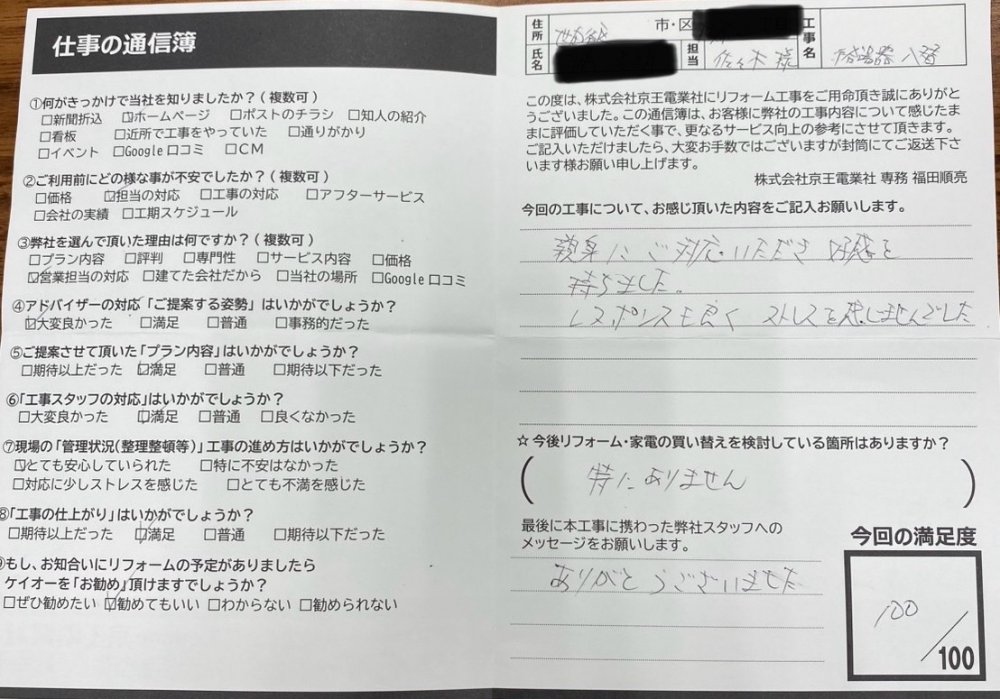 仕事の通信簿
①何がきっかけで当社を知りましたか?(複数可)
□新聞折込 ☑ホームページ □ポストのチラシ □知人の紹介
□看板 □近所で工事をやっていた □通りがかり
□イベント □Google口コミ □CM
②ご利用前にどの様な事が不安でしたか?(複数可)
□価格 ☑担当の対応 □工事の対応 □アフターサービス
□会社の実績 □工期スケジュール
③弊社を選んで頂いた理由は何ですか?(複数可)
□プラン内容 □評判 □専門性 □サービス内容 □価格
☑営業担当の対応 □建てた会社だから □当社の場所 □Google口コミ
④アドバイザーの対応「ご提案する姿勢」はいかがでしょうか?
☑大変良かった □満足 □普通 □事務的だった
⑤ご提案させて頂いた「プラン内容」はいかがでしょうか?
□期待以上だった ☑満足 □普通 □期待以下だった
⑥「工事スタッフの対応」はいかがでしょうか?
□大変良かった ☑満足 □普通 □良くなかった
⑦現場の「管理状況(整理整頓等)」工事の進め方はいかがでしょうか?
☑とても安心していられた □特に不安はなかった
□対応に少しストレスを感じた □とても不満を感じた
⑧「工事の仕上がり」はいかがでしょうか?
□期待以上だった ☑満足 □普通 □期待以下だった
もし、お知合いにリフォームの予定がありましたら
ケイオーを「お勧め」頂けますでしょうか?
□ぜひ勧めたい ☑勧めてもいい □わからない □勧められない
住所 市・区
氏名 担当 佐々木 様 工事名
この度は、株式会社京王電業社にリフォーム工事をご用命頂き誠にありがと
うございました。この通信簿は、お客様に弊社の工事内容について感じたま
まに評価していただく事で、更なるサービス向上の参考にさせて頂きます。
ご記入いただけましたら、大変お手数ではございますが封筒にてご返送下さ
います様お願い申し上げます。
株式会社京王電業社 専務 福田順亮
今回の工事について、お感じ頂いた内容をご記入お願いします。
親身にご対応いただき 好感を
持ちました。
レスポンスも良く ストレスを感じませんでした
☆ 今後リフォーム・家電の買い替えを検討している箇所はありますか?
( 特にありません )
最後に本工事に携わった弊社スタッフへの
メッセージをお願いします。
ありがとうございました
今回の満足度
100
/100